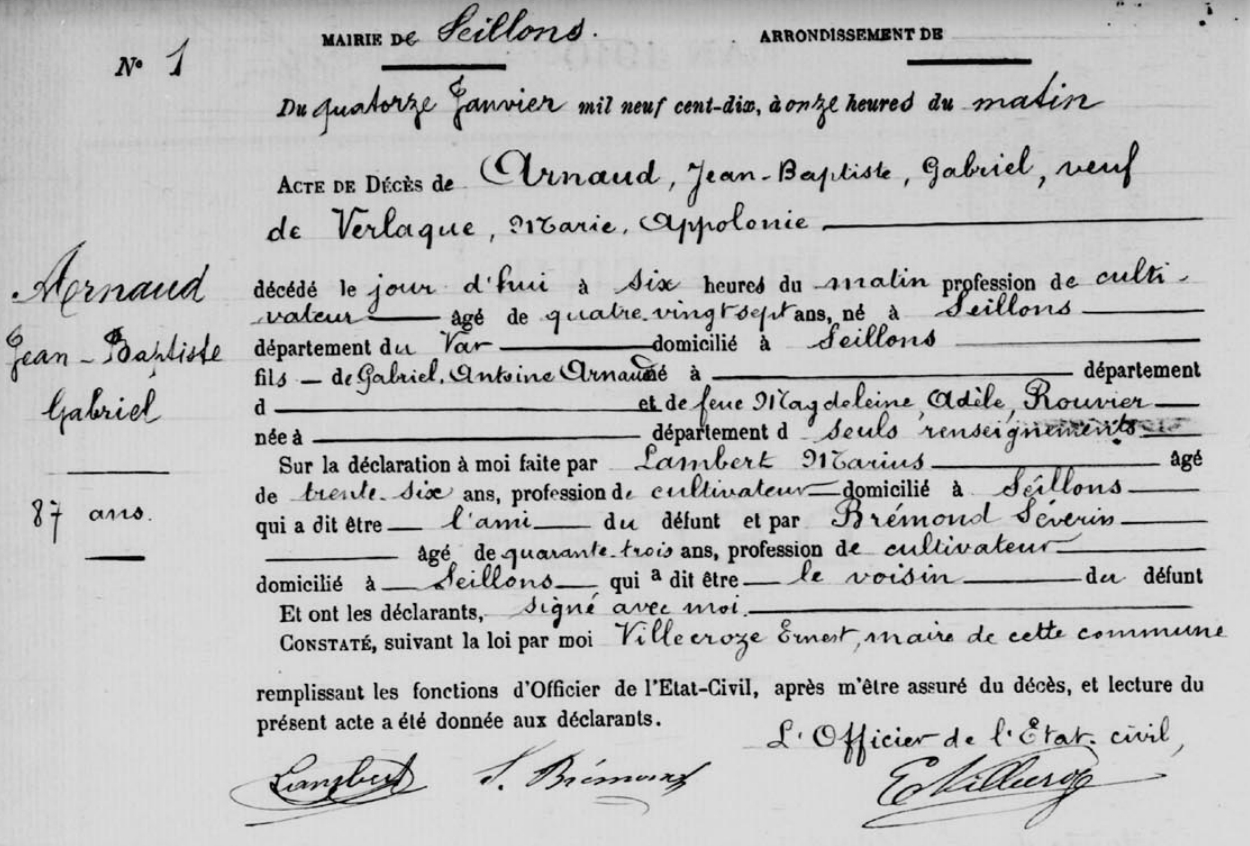 MAIRIE De Seillons. ARRONDISSEMENT DE
N° 1
Du quatorze Janvier mil neuf cent-dix, à onze heures du matin
ACTE DE DÉCÈS de Arnaud, Jean-Baptiste, Gabriel, veuf
de Verlaque, Marie, Appolonie
Arnaud
Jean-Baptiste
Gabriel
87 ans.
décédé le jour d'hui à six heures du matin profession de culti-
vateur âgé de quatre-vingt sept ans, né à Seillons
département du Var domicilié à Seillons
fils de Gabriel, Antoine Arnaud né à département
d et de feue Magdeleine, Adèle, Rouvier
née à département d seuls renseignements
Sur la déclaration à moi faite par Lambert Marius âgé
de trente-six ans, profession de cultivateur domicilié à Seillons
qui a dit être l'ami du défunt et par Brémond Séverin
âgé de quarante-trois ans, profession de cultivateur
domicilié à Seillons qui a dit être le voisin du défunt
Et ont les déclarants, signé avec moi.
CONSTATÉ, suivant la loi par moi Villecroze Ernest, maire de cette commune
remplissant les fonctions d'Officier de l'Etat-Civil, après m'être assuré du décès, et lecture du
présent acte a été donnée aux déclarants.
L'Officier de l'Etat-civil,
Lambert S. Brémond E Villecroze